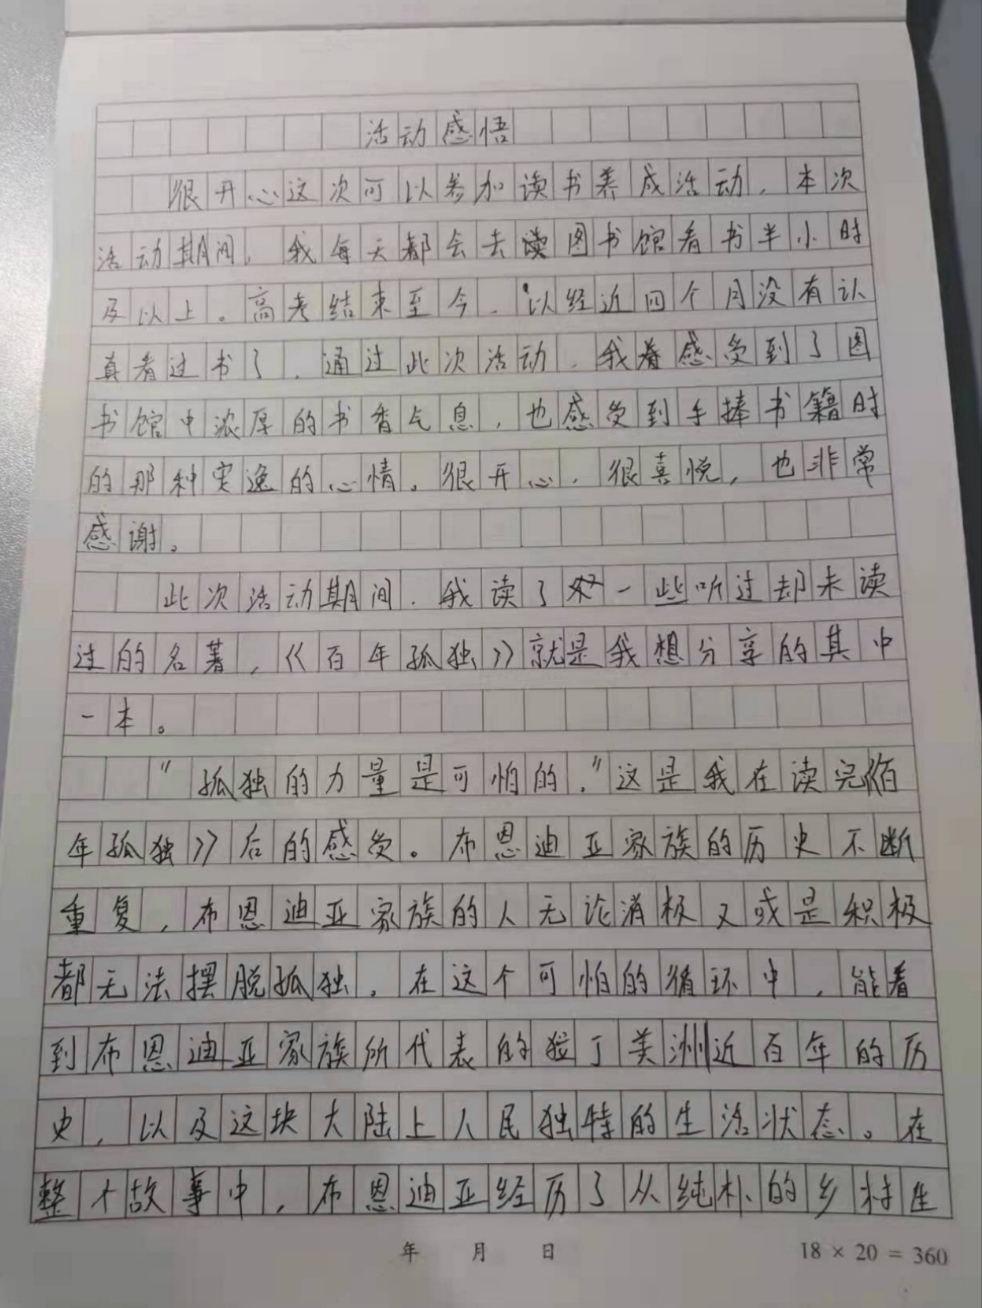 活动感悟
很开心这次可以参加读书养成活动，本次
活动期间，我每天都会去读图书馆看书半小时
及以上。高考结束至今，以经近四个月没有认
真看过书了，通过此次活动，我着感受到了图
书馆中浓厚的书香气息，也感受到手捧书籍时
的那种安逸的心情。很开心，很喜悦，也非常
感谢。
此次活动期间，我读了一些听过却未读
过的名著，《百年孤独》就是我想分享的其中
一本。
“孤独的力量是可怕的。”这是我在读完《百
年孤独》后的感受。布恩迪亚家族的历史不断
重复，布恩迪亚家族的人无论消极又或是积极
都无法摆脱孤独，在这个可怕的循环中，能看
到布恩迪亚家族所代表的拉丁美洲近百年的历
史，以及这块大陆上人民独特的生活状态。在
整个故事中，布恩迪亚经历了从纯朴的乡村生
年 月 日
18 × 20 = 360